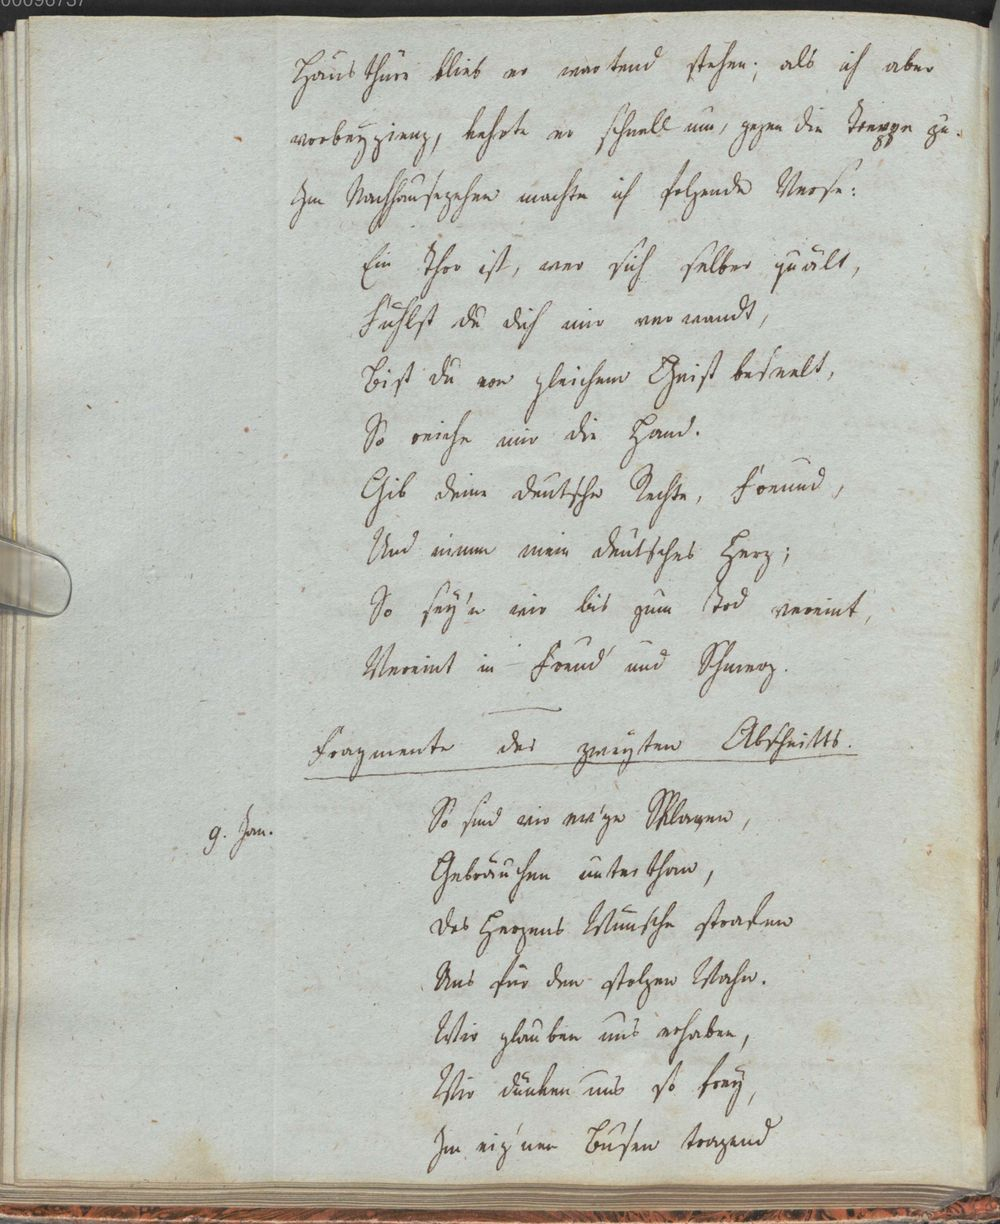 00090737
Hausthüre blieb er wartend stehen; als ich aber
vorbeygieng, kehrte er schnell um, gegen die Treppe zu.
Im Nachhausegehen machte ich folgende Verse:
Ein Thor ist, wer sich selber quält,
Fühlst du dich mir verwandt,
Bist du von gleichem Geist beseelt,
So reiche mir die Hand.
Gib deine deutsche Rechte, Freund,
Und nimm mein deutsches Herz;
So sey'n wir bis zum Tod vereint,
Vereint in Freud' und Schmerz.
Fragmente des zweyten Abschnitts.
9. Jan.
So sind wir ew'ge Sklaven,
Gebräuchen unterthan,
Des Herzens Wünsche strafen
Uns für den stolzen Wahn.
Wir glauben uns erhaben,
Wir dünken uns so frey,
Im eig'nen Busen tragend